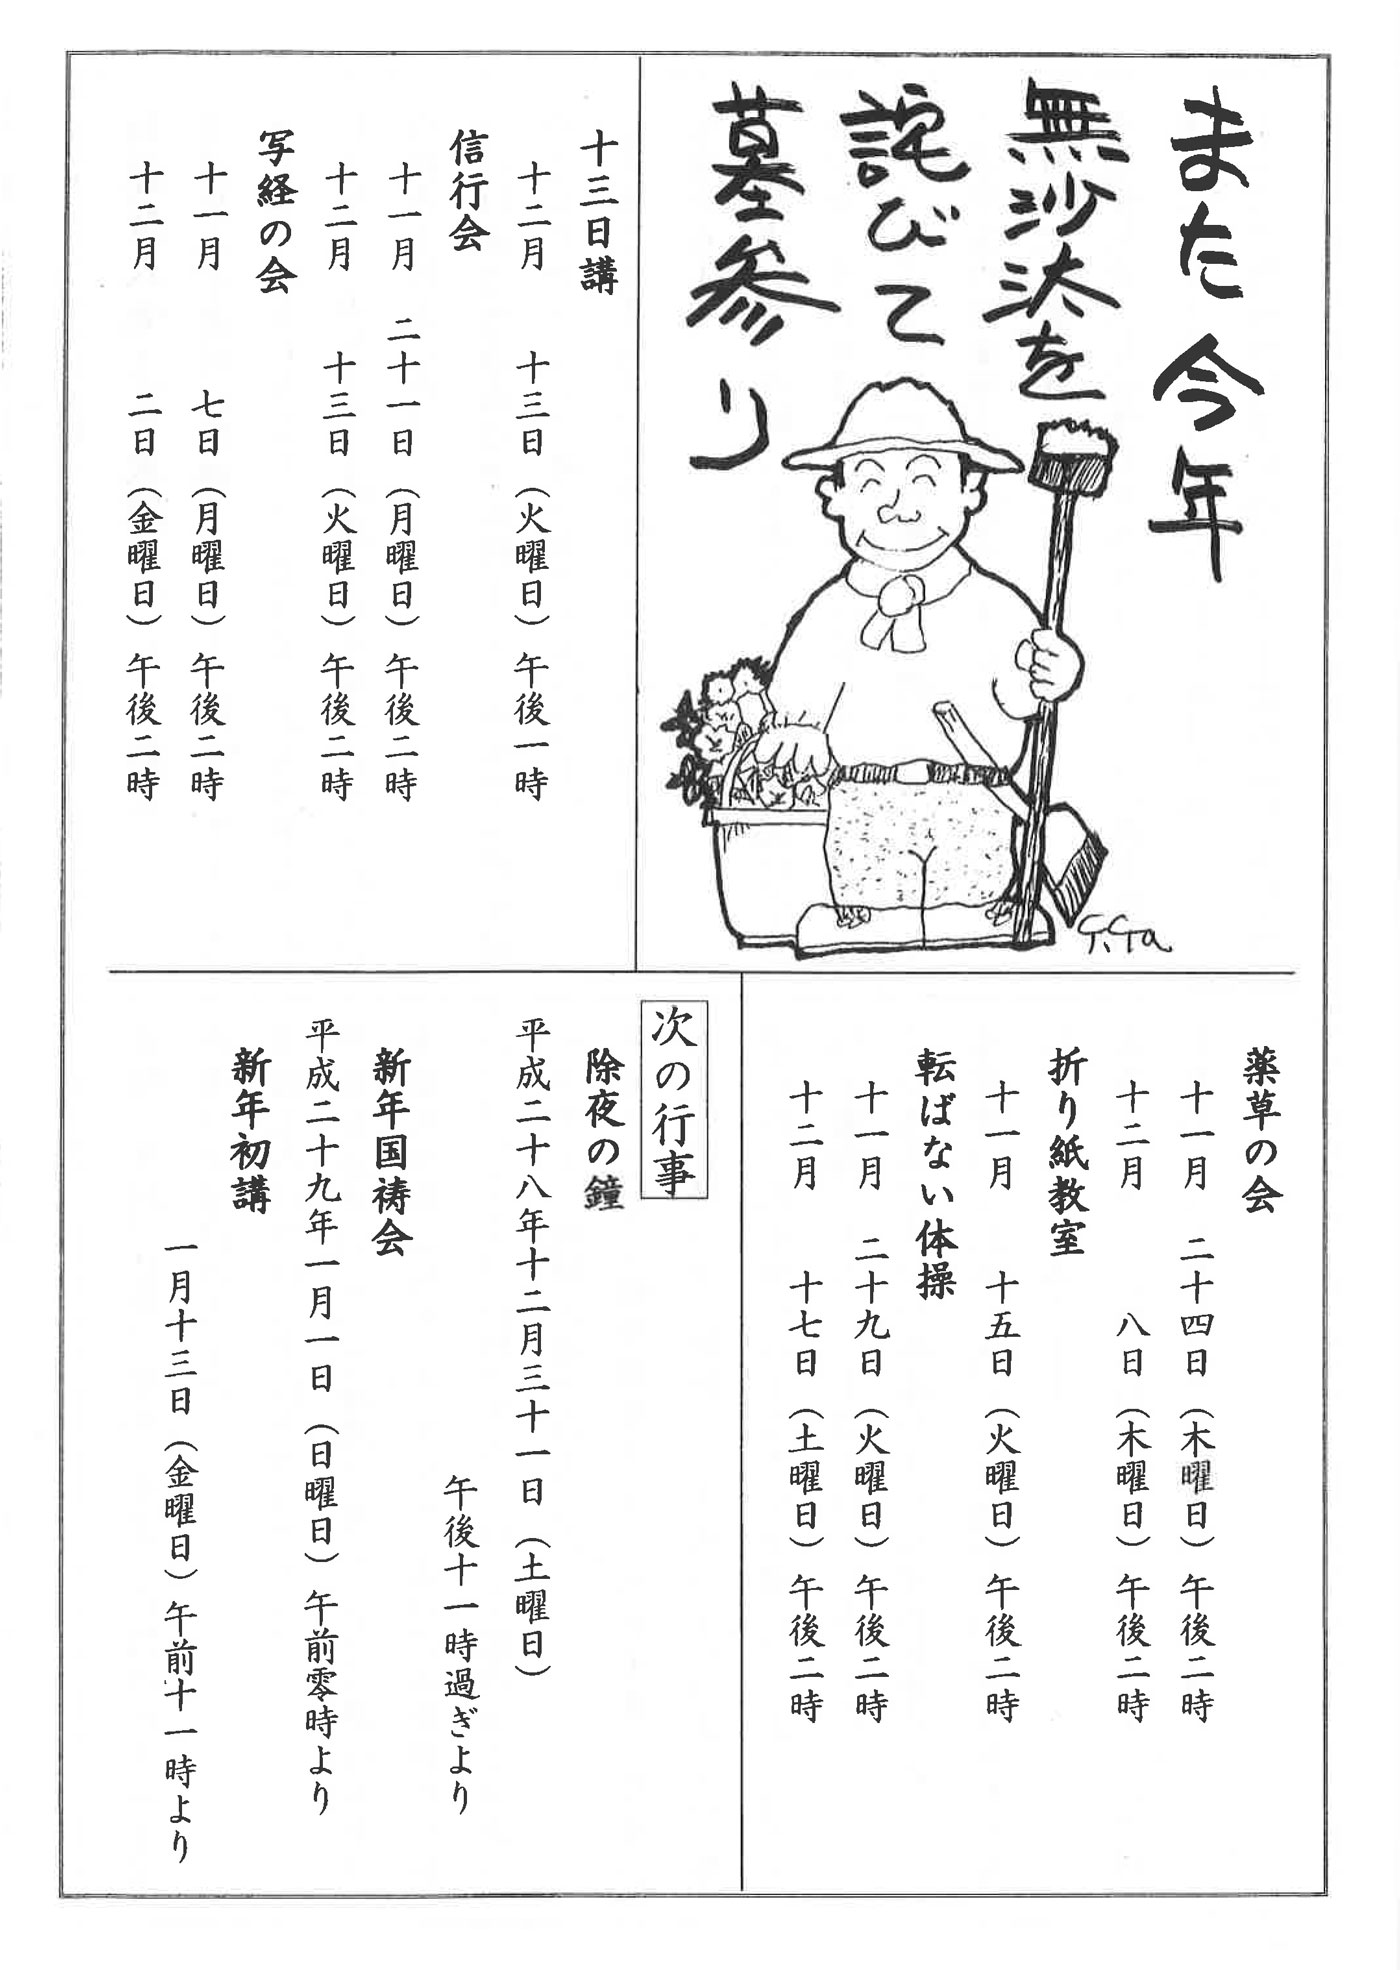 また今年
無沙汰を
詫びて
墓参り
十三日講
十二月 十三日（火曜日）午後一時
信行会
十一月 二十一日（月曜日）午後二時
十二月 十三日（火曜日）午後二時
写経の会
十一月 七日（月曜日）午後二時
十二月 二日（金曜日）午後二時
薬草の会
十一月 二十四日（木曜日）午後二時
十二月 八日（木曜日）午後二時
折り紙教室
十一月 十五日（火曜日）午後二時
転ばない体操
十一月 二十九日（火曜日）午後二時
十二月 十七日（土曜日）午後二時
次の行事
除夜の鐘
平成二十八年十二月三十一日（土曜日）
午後十一時過ぎより
新年国祷会
平成二十九年一月一日（日曜日）午前零時より
新年初講
一月十三日（金曜日）午前十一時より